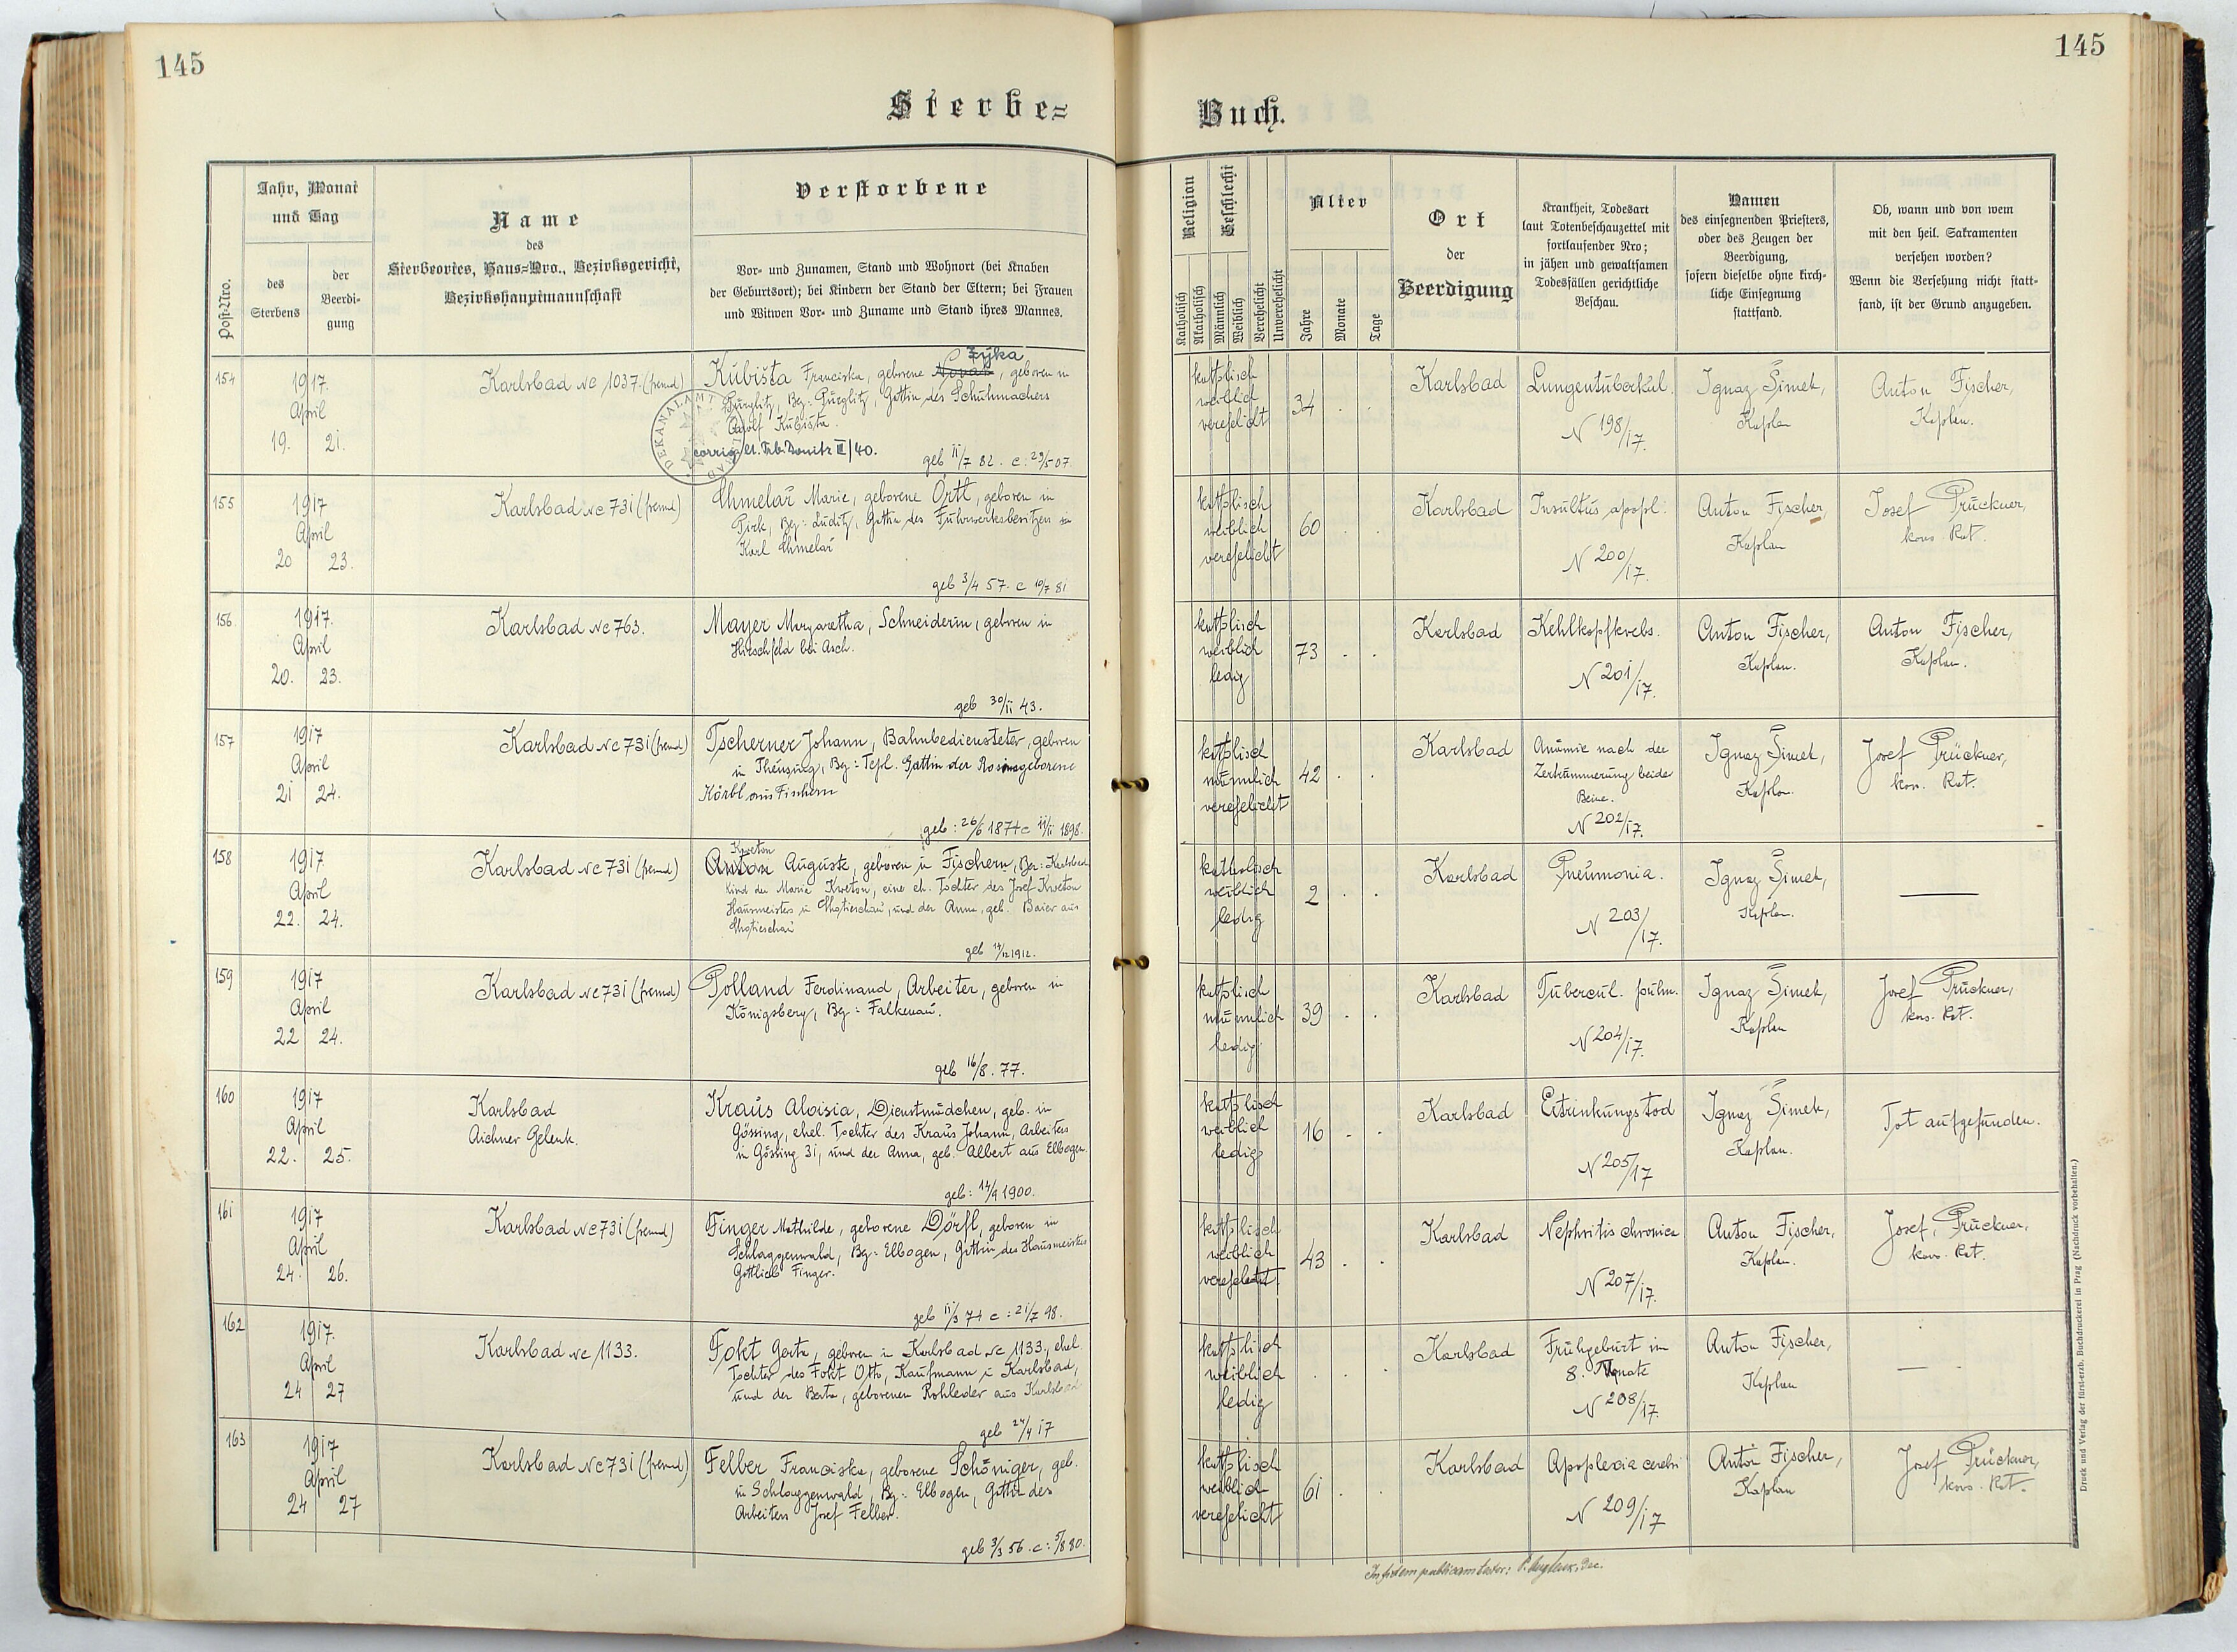 145
145
Sterbe=
Buch.
Post-Nro.
Jahr, Monat
und Tag
des
Sterbens
der
Beerdi-
gung
Name
des
Sterbeortes, Haus=Nro., Bezirksgericht,
Bezirkshauptmannschaft
Verstorbene
Vor- und Zunamen, Stand und Wohnort (bei Knaben
der Geburtsort); bei Kindern der Stand der Eltern; bei Frauen
und Witwen Vor- und Zuname und Stand ihres Mannes.
Religion
Katholisch
Akatholisch
Geschlecht
Männlich
Weiblich
Verehelicht
Unverehelicht
Alter
Jahre
Monate
Tage
Ort
der
Beerdigung
Krankheit, Todesart
laut Totenbeschauzettel mit
fortlaufender Nro;
in jähen und gewaltsamen
Todesfällen gerichtliche
Beschau.
Namen
des einsegnenden Priesters,
oder des Zeugen der
Beerdigung,
sofern dieselbe ohne kirch-
liche Einsegnung
stattfand.
Ob, wann und von wem
mit den heil. Sakramenten
versehen worden?
Wenn die Versehung nicht statt-
fand, ist der Grund anzugeben.
154
1917.
April
19. 21.
Karlsbad Nc 1037. (fremd)
Zýka
Kubišta Franciska, geborene Novak, geboren in
Pürglitz, Bez: Pürglitz, Gattin des Schuhmachers
Adolf Kubišta.
DEKANALAMT
corrig. III/40.
geb 11/7 82. c. 29/5 07.
katholisch
weiblich
verehelicht
34 . .
Karlsbad
Lungentuberkul.
N 198/17.
Ignaz Šimek,
Kaplan
Anton Fischer,
Kaplan.
155
1917
April
20 23.
Karlsbad Nc 731 (fremd)
Chmelař Marie, geborene Örtl, geboren in
Pirk, Bez: Luditz, Gattin des Fuhrwerksbesitzers
Karl Chmelař
geb 3/4 57. c 10/7 81
katholisch
weiblich
verehelicht
60 . .
Karlsbad
Insultus apopl:
N 200/17.
Anton Fischer,
Kaplan
Josef Prückner,
kons. Rat.
156
1917.
April
20. 23.
Karlsbad Nc 763.
Mayer Margaretha, Schneiderin, geboren in
Hirschfeld bei Asch.
geb 30/11 43.
katholisch
weiblich
ledig
73 . .
Karlsbad
Kehlkopfkrebs.
N 201/17.
Anton Fischer,
Kaplan.
Anton Fischer,
Kaplan.
157
1917
April
21 24.
Karlsbad Nc 731 (fremd)
Tscherner Johann, Bahnbediensteter, geboren
in Theusing, Bez: Tepl. Gattin der Rosina geborene
Körbl aus Fischern
geb: 26/6 1874 c 11/11 1898.
katholisch
männlich
verehelicht
42 . .
Karlsbad
Anämie nach der
Zertrümmerung beider
Beine.
N 202/17.
Ignaz Šimek,
Kaplan.
Josef Prückner,
kon. Rat.
158
1917
April
22. 24.
Karlsbad Nc 731 (fremd)
Kweton
Anton Auguste, geboren in Fischern, Bez: Karlsbad
Kind der Maria Kweton, eine eh. Tochter des Josef Kweton
Hausmeisters in Chotieschau, und der Anna, geb. Baier aus
Chotieschau
geb 14/12 1912.
katholisch
weiblich
ledig
2 . .
Karlsbad
Pneumonia.
N 203/17.
Ignaz Šimek,
Kaplan.
—
159
1917
April
22 24.
Karlsbad Nc 731 (fremd)
Polland Ferdinand, Arbeiter, geboren in
Königsberg, Bez: Falkenau.
geb 16/8. 77.
katholisch
männlich
ledig
39 . .
Karlsbad
Tubercul. pulm.
N 204/17.
Ignaz Šimek,
Kaplan
Josef Prückner,
kons. Rat.
160
1917
April
22. 25.
Karlsbad
Aichner Gelenk.
Kraus Aloisia, Dienstmädchen, geb. in
Gössing, ehel. Tochter des Kraus Johann, Arbeiters
in Gössing 31, und der Anna, geb. Albert aus Elbogen.
geb: 14/9 1900.
katholisch
weiblich
ledig
16 . .
Karlsbad
Ertrinkungstod
N 205/17
Ignaz Šimek,
Kaplan.
Tot aufgefunden.
161
1917
April
24. 26.
Karlsbad Nc 731 (fremd)
Finger Mathilde, geborene Dörfl, geboren in
Schlaggenwald, Bez: Elbogen, Gattin des Hausmeisters
Gottlieb Finger.
geb 11/3 74 c: 21/7 98.
katholisch
weiblich
verehelicht
43 . .
Karlsbad
Nephritis chronica
N 207/17.
Anton Fischer,
Kaplan.
Josef Prückner,
kons. Rat.
162
1917.
April
24 27
Karlsbad Nc 1133.
Fokt Gerta, geboren in Karlsbad Nc 1133, ehel.
Tochter des Fokt Otto, Kaufmann in Karlsbad,
und der Berta, geborenen Rohleder aus Karlsbad
geb 24/4 17
katholisch
weiblich
ledig
. . .
Karlsbad
Frühgeburt im
8. Monate
N 208/17.
Anton Fischer,
Kaplan
—
163
1917
April
24 27
Karlsbad Nc 731 (fremd)
Felber Franciska, geborene Schöniger, geb.
in Schlaggenwald, Bez: Elbogen, Gattin des
Arbeiters Josef Felber.
geb 3/3 56. c: 5/8 80.
katholisch
weiblich
verehelicht
61 . .
Karlsbad
Apoplexia cerebri
N 209/17
Anton Fischer,
Kaplan
Josef Prückner,
kons. Rat.
In fidem publicam testor:
Druck und Verlag der fürst-erzb. Buchdruckerei in Prag (Nachdruck vorbehalten.)